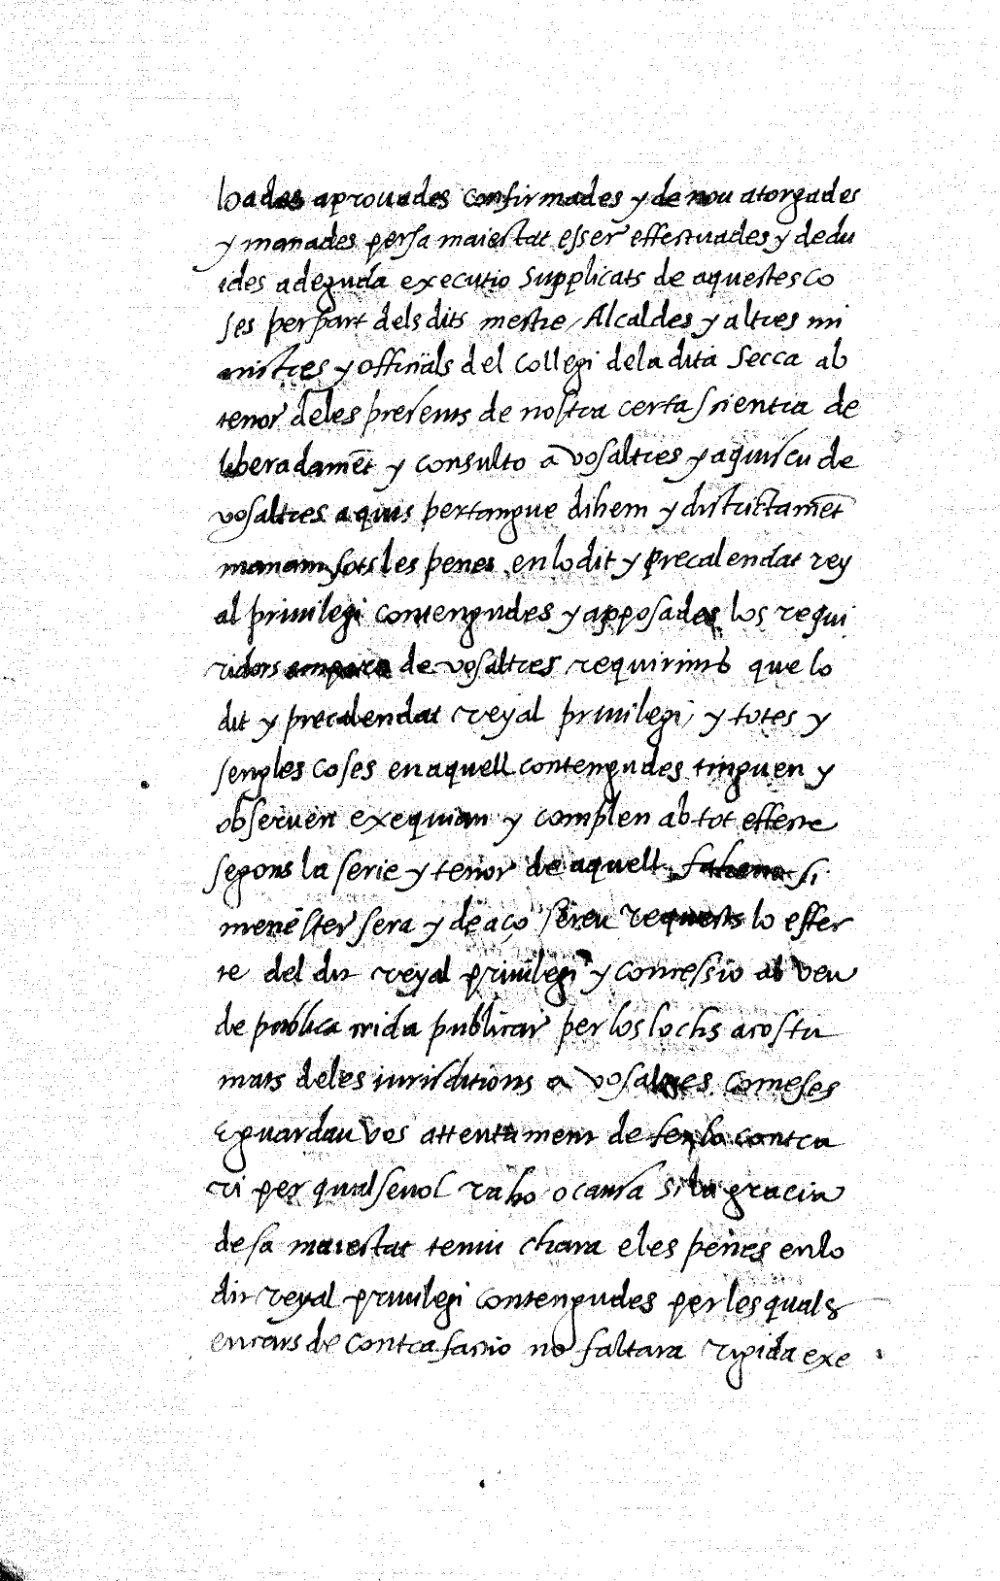 loades aprouades confirmades y de nou atorgades
y manades per sa maiestat esser effectuades y dedu
ides a deguda executio Supplicats de aquestes co
ses per part dels dits mestre, Alcaldes y altres mi
nistres y officials del Collegi de la dita Secca ab
tenor deles presents de nostra certa scientia de
liberadamēt y consulto a vosaltres y a quiscu de
vosaltres a quis pertangue dihem y districtamēt
manam sots les penes en lo dit y precalendat rey
al priuilegi contengudes y apposades los requi
ridors de vosaltres requirims que lo
dit y precalendat reyal priuilegi, y totes y
sengles coses en aquell contengudes tinguen y
obseruen exequian y complen ab tot effecte
segons la serie y tenor de aquell fahent si
menester sera y de aço sereu requests lo effec
te del dit reyal priuilegi y concessio ab veu
de publica crida publicar per los lochs acostu
mats deles iurisditions a vosaltres comeses
E guardau vos attentament de fer lo contra
ri per qualseuol raho o causa si la gracia
de sa maiestat teniu chara e les penes en lo
dit reyal priuilegi contengudes per les quals
en cars de contrafactio no faltara rigida exe